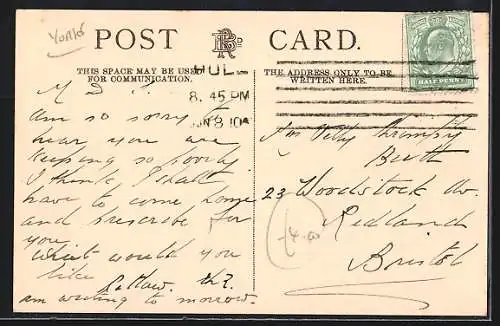 Yorks
POST CARD.
THIS SPACE MAY BE USED
FOR COMMUNICATION.
THE ADDRESS ONLY TO BE
WRITTEN HERE.
HUL
8. 45 PM
JN 8 10
HALF PENNY
M D
am so sorry to
hear you are
keeping so poorly
I think I shall
have to come home
and prescribe for
you
What would you
like
am writing to morrow.
23 Woodstock Av.
Redland
Bristol